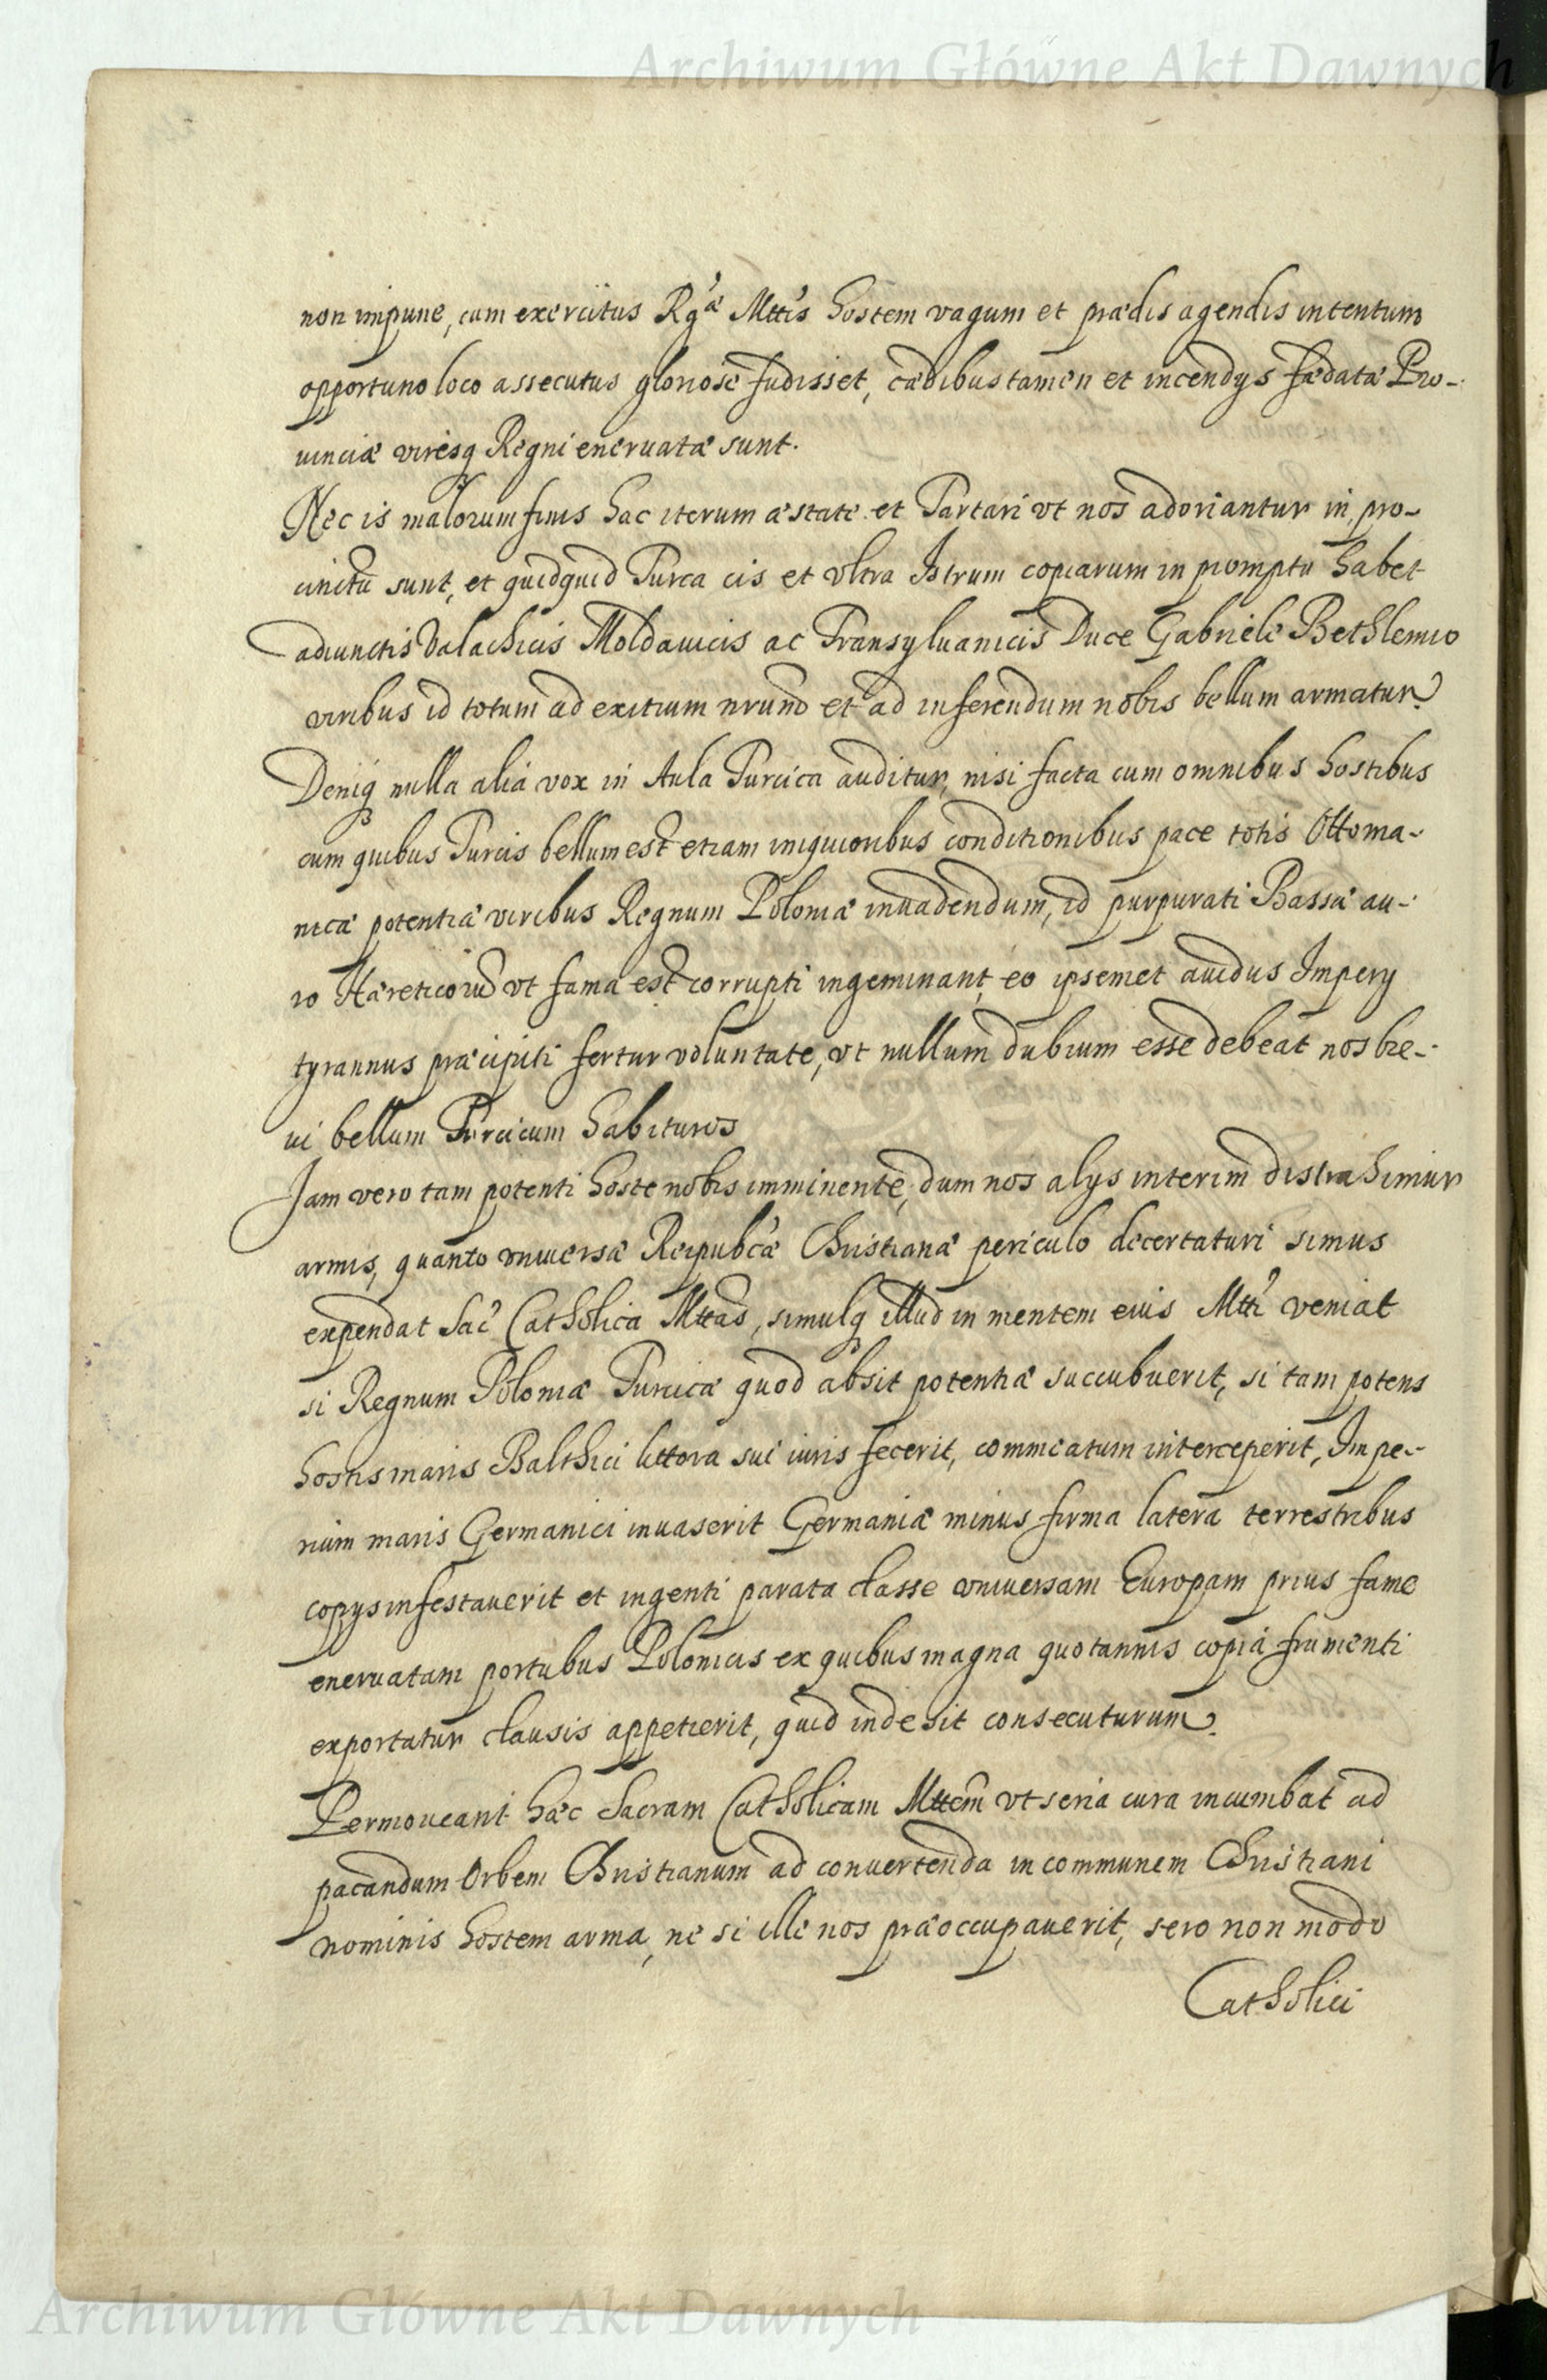 Archiwum Główne Akt Dawnych
non impune, cum exercitus Rg'æ Mttis hostem vagum et prædis agendis intentum
opportuno loco assecutus gloriose fudisset, cædibus tamen et incendys fædatæ Pro-
uinciæ viresq Regni eneruatæ sunt.
Nec is malorum finis hac iterum æstate et Tartari vt nos adoriantur in pro-
cinctu sunt, et quidquid Turca cis et vltra Istrum copiarum in promptu habet
adiunctis Valachicis Moldauicis ac Transyluanicis Duce Gabriele Bethlemio
viribus id totum ad exitium nrum et ad inferendum nobis bellum armatur.
Deniq nulla alia vox in Aula Turcica auditur, nisi facta cum omnibus hostibus
cum quibus Turcis bellum est etiam iniquioribus conditionibus pace totis Ottoma-
nicæ potentiæ viribus Regnum Poloniæ inuadendum, id purpurati Bassæ au-
ro Hæreticorū vt fama est corrupti ingeminant, eo ipsemet auidus Impery
tyrannus præcipiti fertur voluntate, vt nullum dubium esse debeat nos bre-
ui bellum Turcicum habituros
Jam vero tam potenti hoste nobis imminente, dum nos alys interim distrahimur
armis, quanto vniuersæ Reipubcæ Christianæ periculo decertaturi simus
expendat Sac' Catholica Mttas, simulq illud in mentem eius Mtti veniat
si Regnum Poloniæ Turcicæ quod absit potentiæ succubuerit, si tam potens
hostis maris Balthici littora sui iuris fecerit, commeatum interceperit, Impe-
rium maris Germanici inuaserit Germaniæ minus firma latera terrestribus
copys infestauerit et ingenti parata classe vniuersam Europam prius fame
eneruatam portubus Polonicis ex quibus magna quotannis copia frumenti
exportatur clausis appetierit, quid inde sit consecuturum.
Permoueant hæc Sacram Catholicam Mttem vt seria cura incumbat ad
pacandum Orbem Christianum ad conuertenda in communem Christiani
nominis hostem arma, ne si ille nos præoccupauerit, sero non modo
Catholici
Archiwum Główne Akt Dawnych